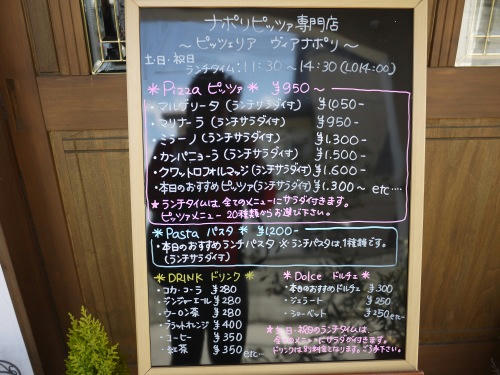 ナポリピッツァ専門店
～ピッツェリア ヴィアナポリ～
土・日・祝日
ランチタイム:11:30～14:30(LO14:00)
* Pizza ピッツァ * ¥950～
・マルゲリータ(ランチサラダ付) ¥1,050-
・マリナーラ(ランチサラダ付) ¥950-
・ミラーノ(ランチサラダ付) ¥1,300-
・カンパニョーラ(ランチサラダ付) ¥1,500-
・クワットロフォルマッジ(ランチサラダ付) ¥1,600-
・本日のおすすめピッツァ(ランチサラダ付) ¥1,300～ etc....
★ランチタイムは、全てのメニューにサラダ付きます。
ピッツァメニュー 20種類からお選び下さい。
* Pasta パスタ * ¥1,200-
・本日のおすすめランチパスタ ※ランチパスタは、1種類です。
(ランチサラダ付)
* DRINK ドリンク *
・コカ・コーラ ¥280
・ジンジャーエール ¥280
・ウーロン茶 ¥280
・ブラッドオレンジ ¥400
・コーヒー ¥350
・紅茶 ¥350 etc...
* Dolce ドルチェ *
・本日のおすすめドルチェ ¥300
・ジェラート ¥250
・シャーベット ¥250 etc...
★土・日・祝日のランチタイムは、
全てのメニューにサラダ付きます。
ドリンクは別料金となります。ご了承下さい。